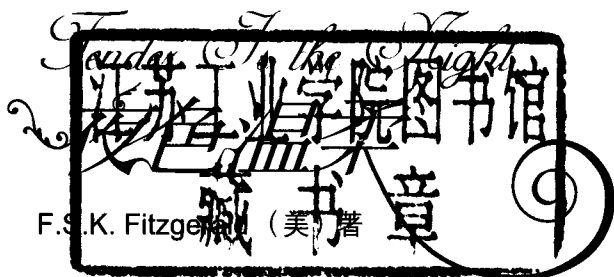 Tender Is the Night
江苏工业学院图书馆
藏书章
F.S.K. Fitzgerald （美）著